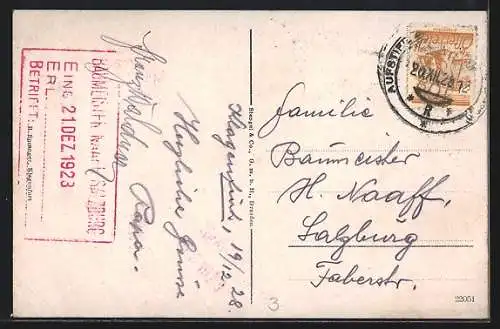 Klagenfurt, 19/12.28.
Herzliche Grüsse
Papa.
Familie
Baumeister
H. Naaff,
Salzburg
Faberstr.
BAUMEISTER NAAFF, SALZBURG
EING. 21. DEZ. 1928
ERL.
BETRIFFT:
Stengel & Co., G. m. b. H., Dresden.
20.XII.28.12
* R *
22051
3